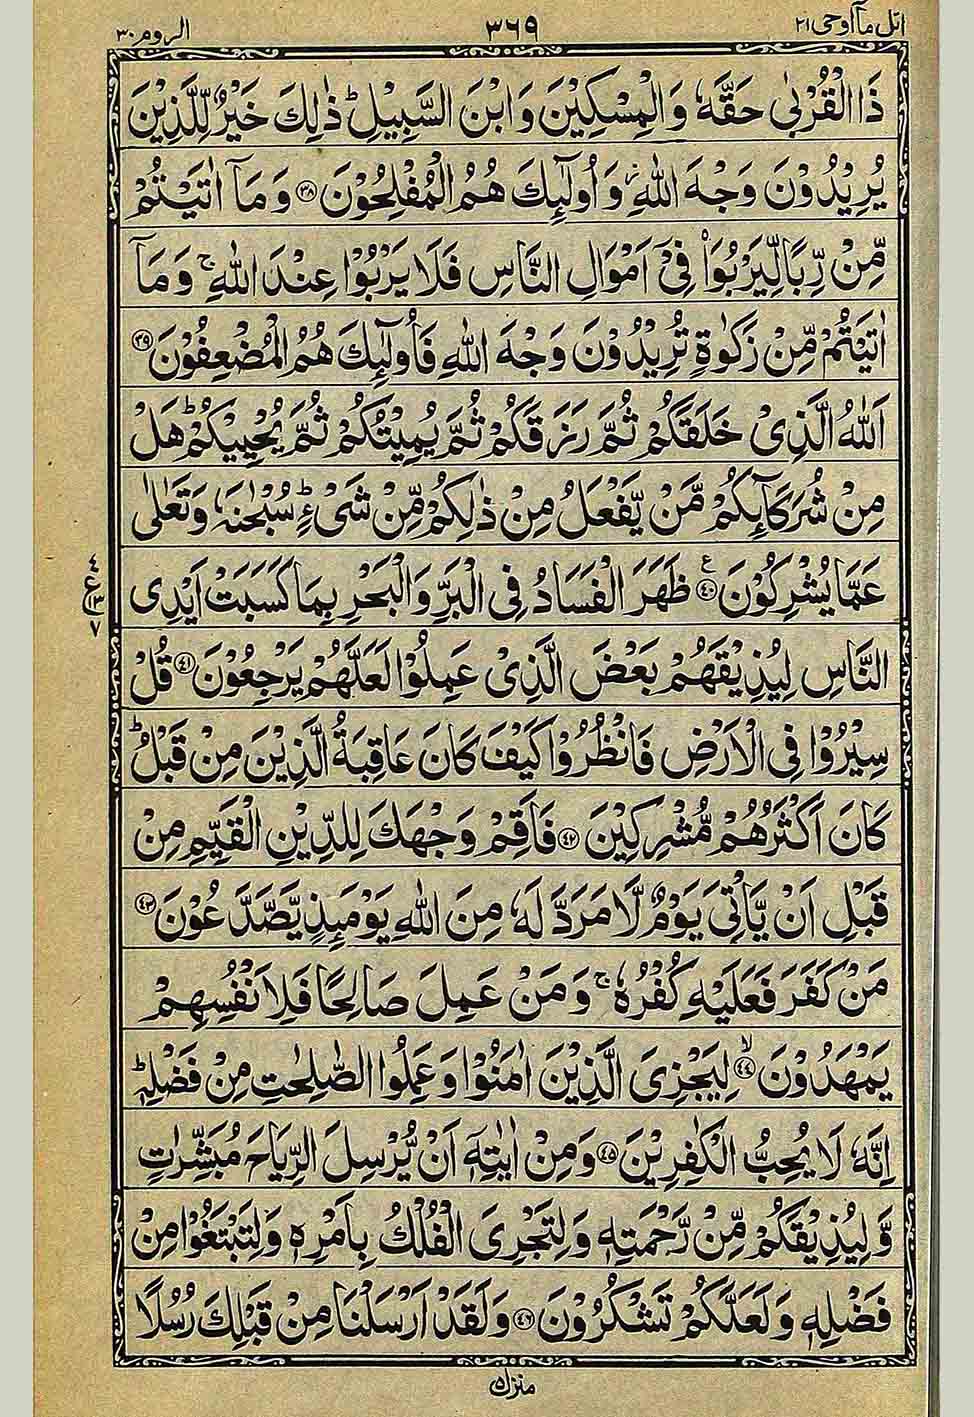 اتل مآ اوحی ۲۱
۳۶۹
الروم ۳۰
ذَا الْقُرْبٰى حَقَّهٗ وَالْمِسْكِيْنَ وَابْنَ السَّبِيْلِ ؕ ذٰلِكَ خَيْرٌ لِّلَّذِيْنَ
يُرِيْدُوْنَ وَجْهَ اللّٰهِ ؗ وَاُولٰٓئِكَ هُمُ الْمُفْلِحُوْنَ ﴿۳۸﴾ وَمَاۤ اٰتَيْتُمْ
مِّنْ رِّبًا لِّيَرْبُوَا۠ فِىْۤ اَمْوَالِ النَّاسِ فَلَا يَرْبُوْا عِنْدَ اللّٰهِ ۚ وَمَاۤ
اٰتَيْتُمْ مِّنْ زَكٰوةٍ تُرِيْدُوْنَ وَجْهَ اللّٰهِ فَاُولٰٓئِكَ هُمُ الْمُضْعِفُوْنَ ﴿۳۹﴾
اَللّٰهُ الَّذِىْ خَلَقَكُمْ ثُمَّ رَزَقَكُمْ ثُمَّ يُمِيْتُكُمْ ثُمَّ يُحْيِيْكُمْ ؕ هَلْ
مِنْ شُرَكَآئِكُمْ مَّنْ يَّفْعَلُ مِنْ ذٰلِكُمْ مِّنْ شَىْءٍ ؕ سُبْحٰنَهٗ وَتَعٰلٰى
عَمَّا يُشْرِكُوْنَ ﴿۴۰﴾ ظَهَرَ الْفَسَادُ فِى الْبَرِّ وَالْبَحْرِ بِمَا كَسَبَتْ اَيْدِى
۴ ع ۱۳ ۷
النَّاسِ لِيُذِيْقَهُمْ بَعْضَ الَّذِىْ عَمِلُوْا لَعَلَّهُمْ يَرْجِعُوْنَ ﴿۴۱﴾ قُلْ
سِيْرُوْا فِى الْاَرْضِ فَانْظُرُوْا كَيْفَ كَانَ عَاقِبَةُ الَّذِيْنَ مِنْ قَبْلُ ؕ
كَانَ اَكْثَرُهُمْ مُّشْرِكِيْنَ ﴿۴۲﴾ فَاَقِمْ وَجْهَكَ لِلدِّيْنِ الْقَيِّمِ مِنْ
قَبْلِ اَنْ يَّاْتِىَ يَوْمٌ لَّا مَرَدَّ لَهٗ مِنَ اللّٰهِ يَوْمَئِذٍ يَّصَّدَّعُوْنَ ﴿۴۳﴾
مَنْ كَفَرَ فَعَلَيْهِ كُفْرُهٗ ۚ وَمَنْ عَمِلَ صَالِحًا فَلِاَنْفُسِهِمْ
يَمْهَدُوْنَ ﴿۴۴﴾ ۙ لِيَجْزِىَ الَّذِيْنَ اٰمَنُوْا وَعَمِلُوا الصّٰلِحٰتِ مِنْ فَضْلِهٖ ؕ
اِنَّهٗ لَا يُحِبُّ الْكٰفِرِيْنَ ﴿۴۵﴾ وَمِنْ اٰيٰتِهٖۤ اَنْ يُّرْسِلَ الرِّيَاحَ مُبَشِّرٰتٍ
وَّلِيُذِيْقَكُمْ مِّنْ رَّحْمَتِهٖ وَلِتَجْرِىَ الْفُلْكُ بِاَمْرِهٖ وَلِتَبْتَغُوْا مِنْ
فَضْلِهٖ وَلَعَلَّكُمْ تَشْكُرُوْنَ ﴿۴۶﴾ وَلَقَدْ اَرْسَلْنَا مِنْ قَبْلِكَ رُسُلًا
منزل ۵